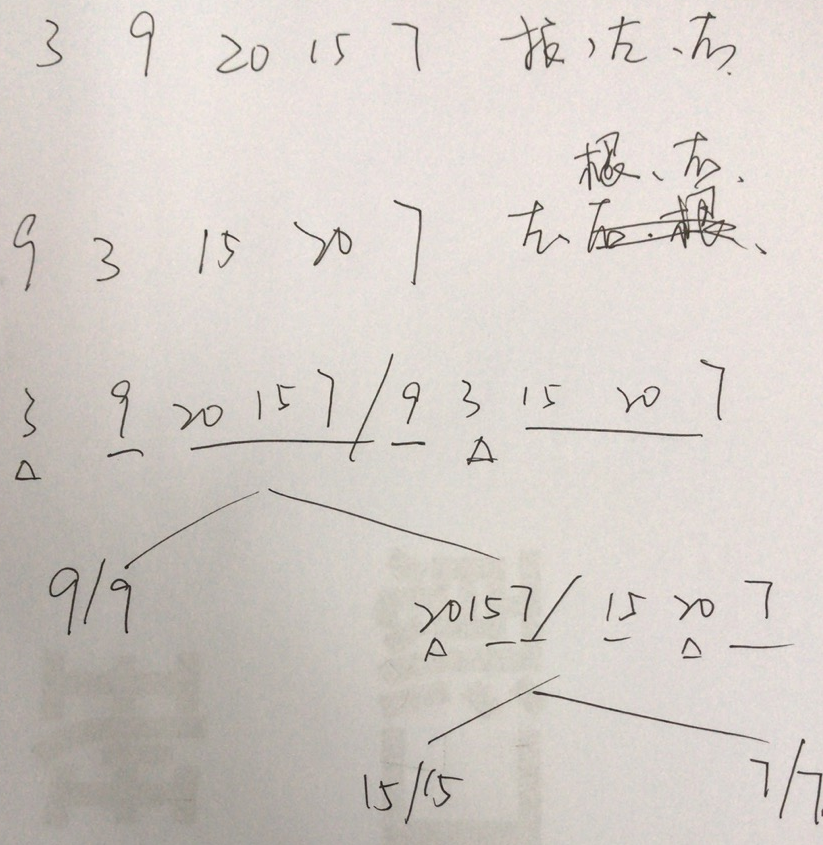 3 9 20 15 7 根、左、右.
根、右.
9 3 15 20 7 左、右.根、
3 9 20 15 7 / 9 3 15 20 7
△ △
9/9
20 15 7 / 15 20 7
△ △
15/15 7/7